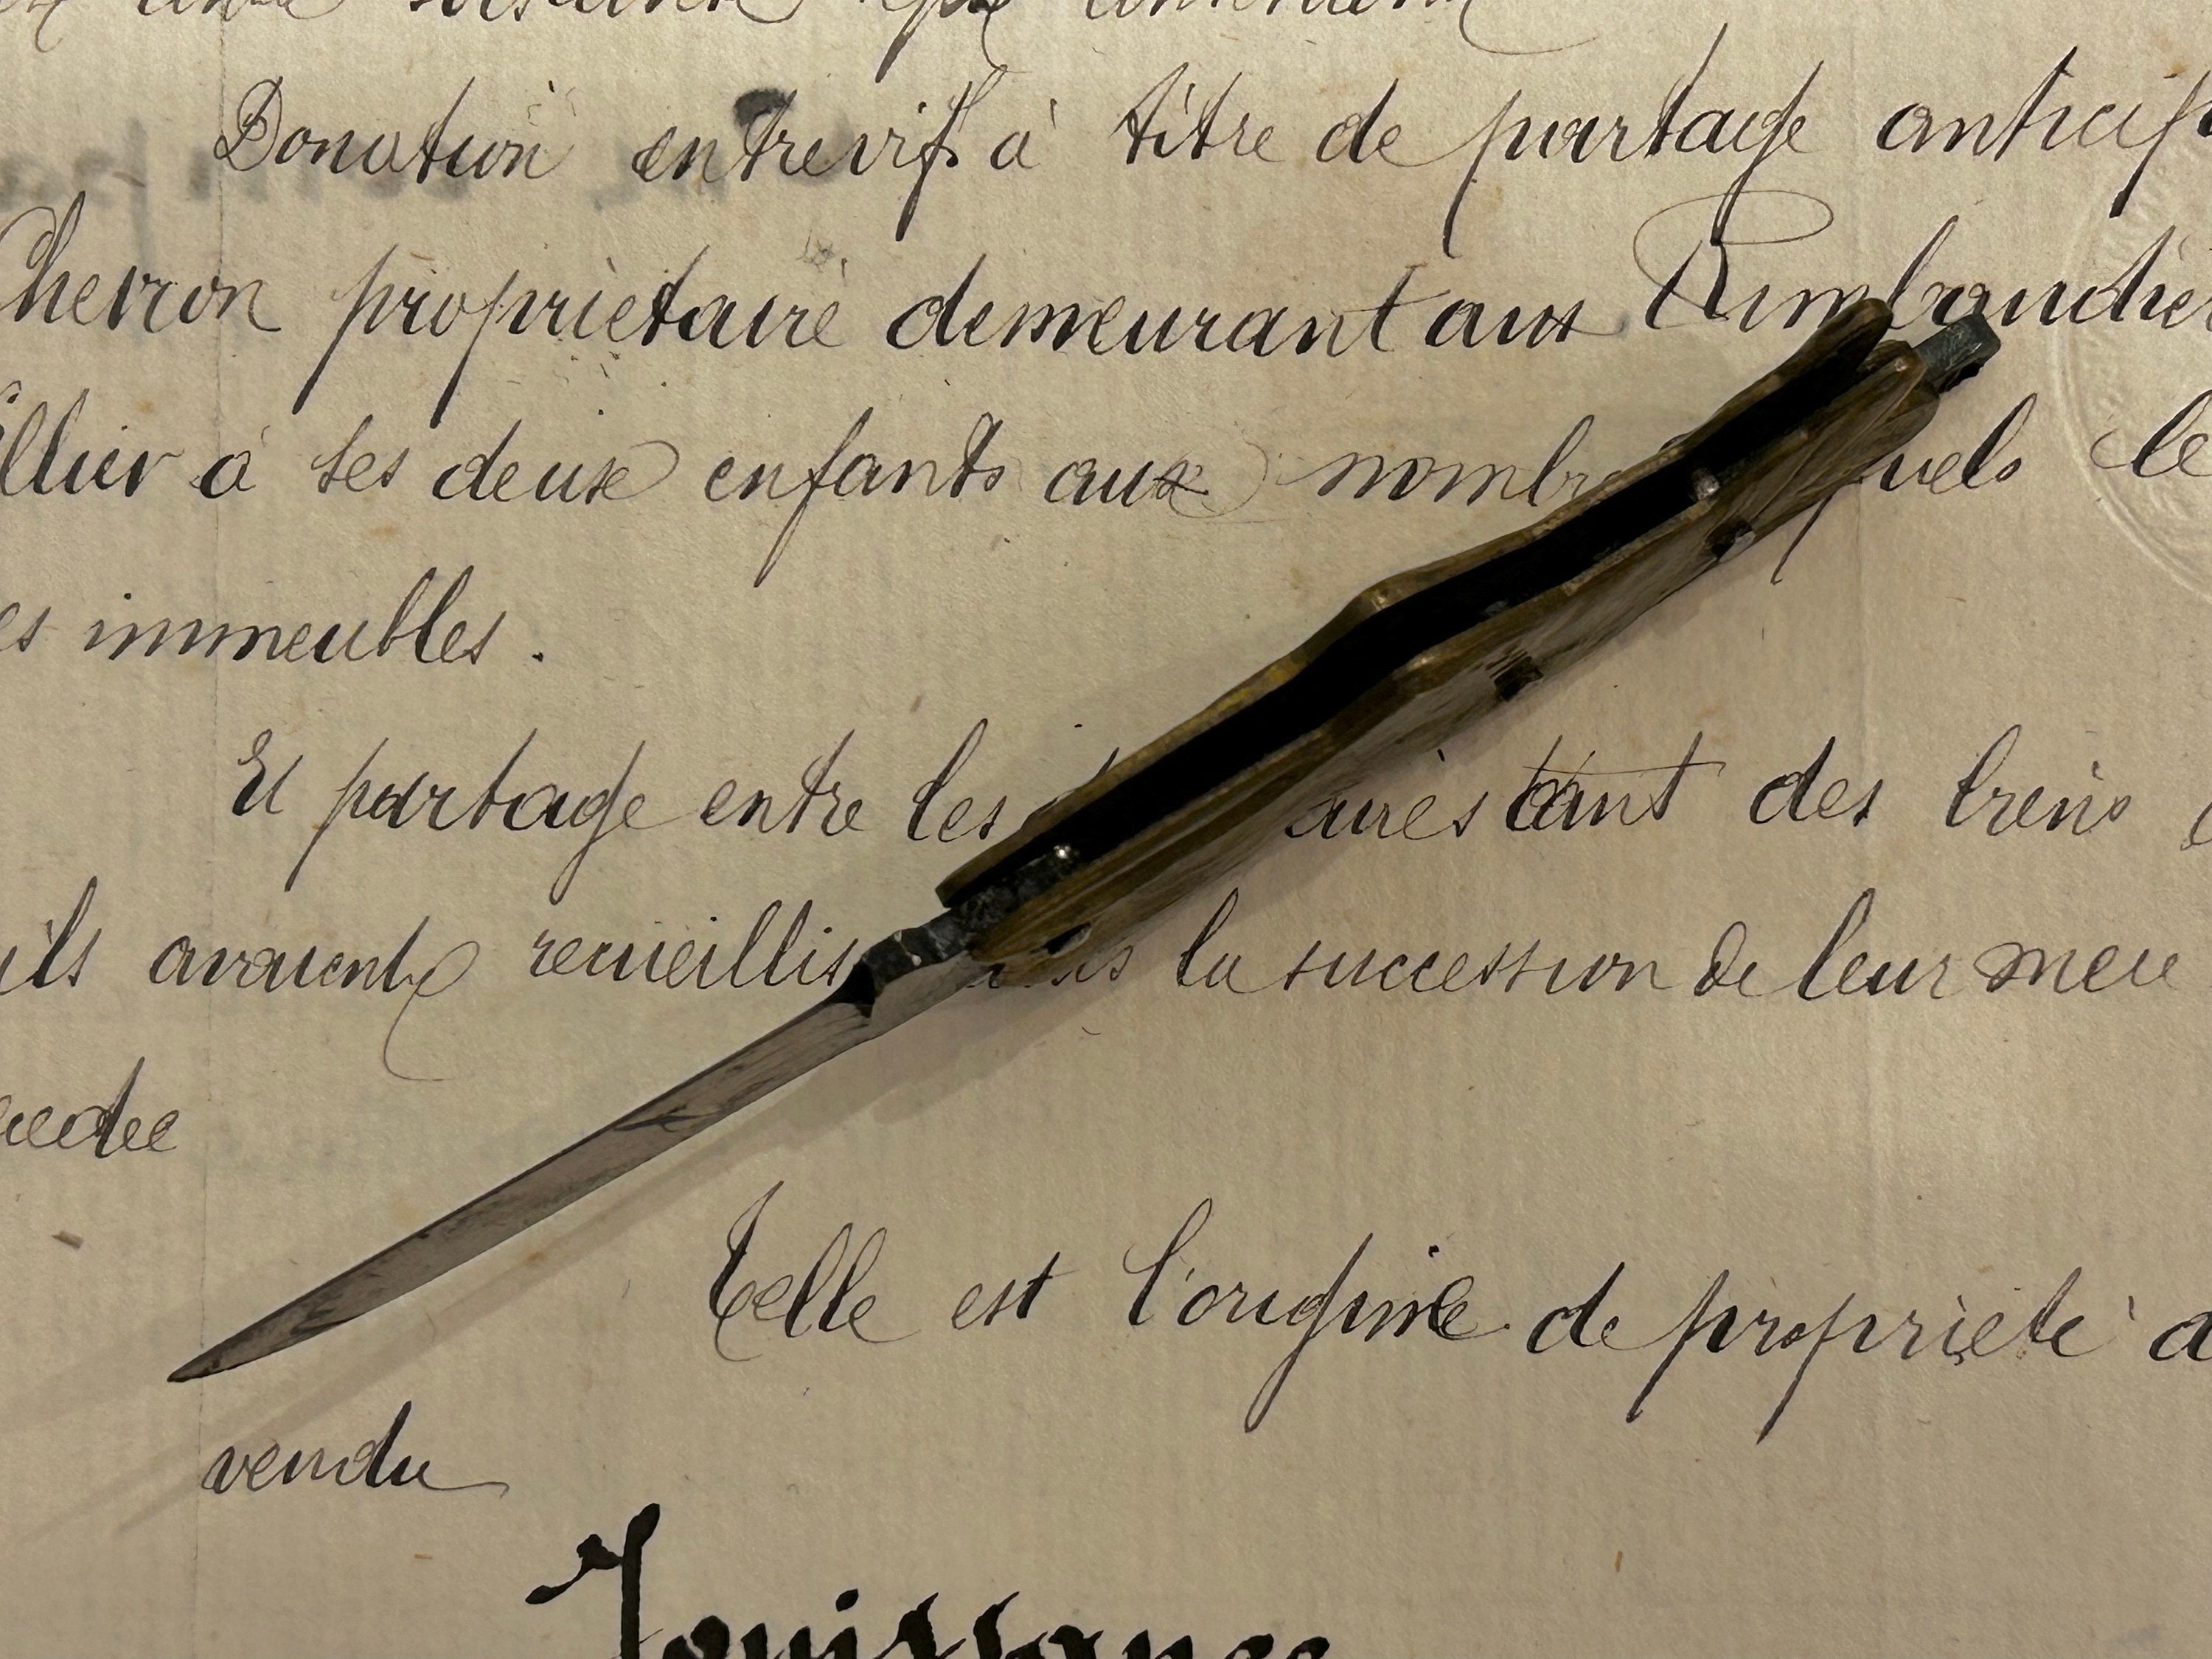 Donation entrevifs à titre de partage anticip
Chevron propriètaire demeurant aux Rimbaudie
llier à ses deux enfants aux nombr quels le
es immeubles.
Et partage entre les airès tant des biens
ils avaient recueillis la succession de leur mere
cedee
Telle est l'origine de propriète
vendu
Jouissance